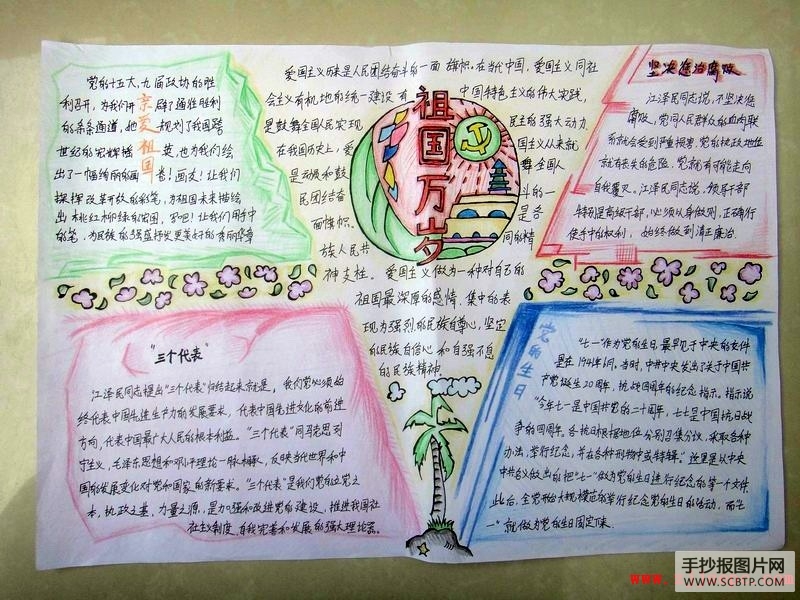 党的十五大,九届政协的胜
利召开,为我们开辟了通往胜利
的条条通道,她规划了我国跨
世纪的宏辉
也为我们绘
出了一幅绚丽的画卷!画友!让我们
挥挥改革开放的彩笔,为祖国未来描绘
出桃红柳绿的宏图,学吧!让我们用手中
的笔,为民族的强盛抒发更美好的秀丽华章
京爱祖国
爱国主义历来是人民团结奋斗的一面旗帜.在当代中国,爱国主义同社
会主义有机地的统一建设有中国特色主义的伟大实践,
是鼓舞全国人民实现民族的强大动力.
在我国历史上,爱国主义从来就
是动员和鼓舞全国人
民团结奋斗的一
面旗帜.是各
族人民共同的精
神支柱。爱国主义做为一种对自己的
祖国最深厚的感情.集中的表
现为强烈的民族自尊心,坚定
的民族自信心和自强不息
的民族精神.
祖国万岁
坚决惩治腐败
江泽民同志说,不坚决惩
腐败,党同人民群众的血肉联
系就会受到严重损害,党的执政地位
就有丧失的危险,党就有可能走向
自我毁灭。江泽民同志说,领导干部
特别是高级干部,必须从身做到,正确行
使手中的权利,始终做到清正廉洁.
"三个代表"
江泽民同志提出"三个代表"归结起来就是,我们党必须始
终代表中国先进生产力的发展要求,代表中国先进文化的前进
方向,代表中国最广大人民的根本利益。"三个代表"同马克思列
宁主义,毛泽东思想和邓小平理论一脉相承,反映当代世界和中
国的发展变化对党和国家的新要求。"三个代表"是我们党的立党之
本,执政之基,力量之源,是加强和改进党的建设,推进我国社
社主义制度,自我完善和发展的强大理论器.
党的生日
"七一"作为党的生日,最早见于中央的文件
是在1941年6月.当时,中共中央发出了关于中国共
产党诞生20周年.抗战四周年的纪念指示。指示说
"今年七一是中国共党的二十周年,七七是中国抗日战
争的四周年.各抗日根据地位分别召集分议,采取各种
办法,举行纪念,并在各种刊物中或特辑。"这里是从中央
中共立义做出的把"七一"做为党的生日进行纪念的第一个文件.
此后,全党开始大规模范的举行纪念党的生日的活动,而"七
一"就做为党的生日固定下来.
手抄报图片网
WWW.SCBTP.COM